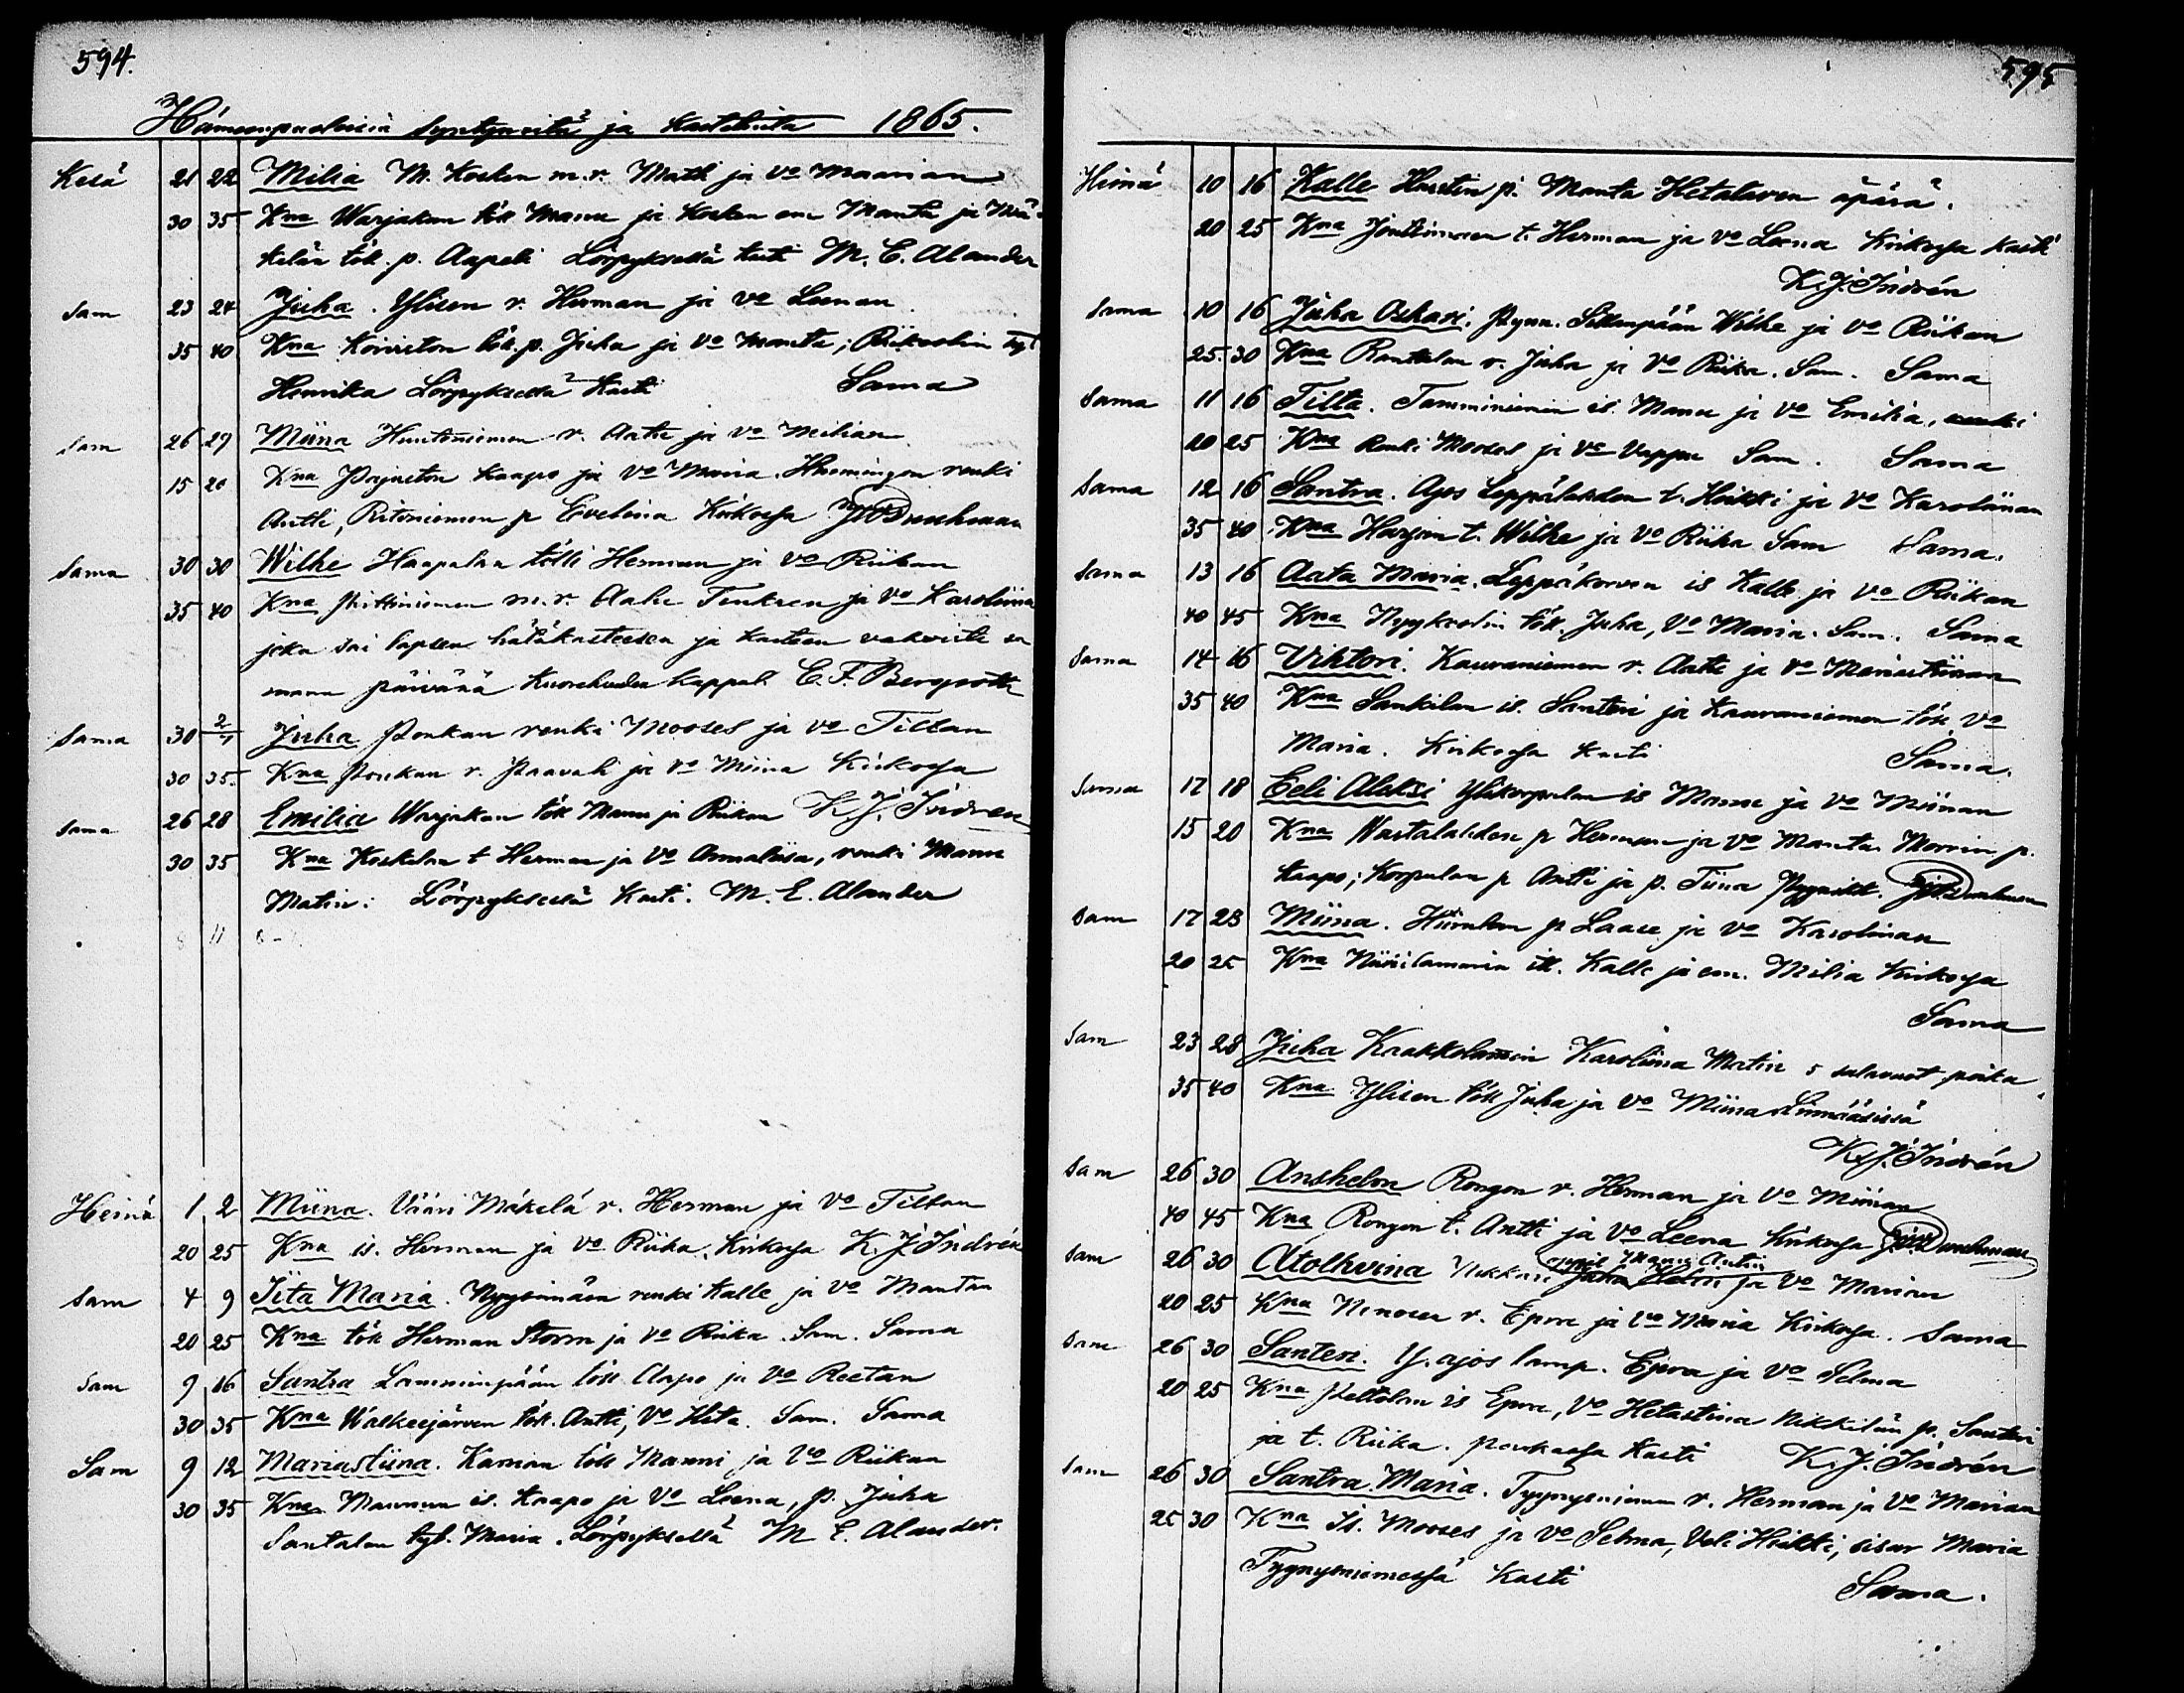 594.
Hämeenpuolisia syntyneitä ja kastetuita 1865.
Kesä 21 22 Milia M. Kosken m.r. Matti ja Vo Maarian
30 35 Kna Warjakan töll Manu ja Kosken em Manta ja Mä-
kelän töll. p. Aapeli Löpyksellä kasti M. E. Alander
Sam 23 24 Juha. Ylisen r. Herman ja Vo Leenan
35 40 Kna Koiviston töll. p. Juha ja Vo Manta; tyt
Henrika Löpyksellä kasti Sama
Sam 26 29 Miina Huntoniemen r. Aatu ja Vo Milian
15 20 Kna Pajuston Kaapo ja Vo Maria. renki
Antti, Ritoniemen p Evelina Kirkossa
Sama 30 30 Wilhe Haapalan tölli Herman ja Vo Riikan
35 40 Kna m.r. Aalu ja Vo Karoliina
joka sai lapsen hätäkasteesen ja kasteen vahvisti sa
mana päivänä Kuorehuden kappal. C. F. Bergroth
Sama 30 2/7 Juha Ponkan renki Mooses ja Vo Tiltan
30 35. Kna Ponkan r. Paavali ja Vo Miina Kirkossa
Sama 26 28 Emilia Warjakan töll Manu ja Riikan K. J. Indrén
30 35 Kna Koskelan t Herman ja Vo Annaliisa, renki Manu
Matin: Löpyksellä Kasti. M. E. Alander
Heinä 1 2 Miina. Vääri Mäkelä r. Herman ja Vo Tiltan
20 25 Kna is. Herman ja Vo Riika. Kirkossa K. J. Indrén
Sam 4 9 Iita Maria. renki Kalle ja Vo Mantan
20 25 Kna töll Herman Storm ja Vo Riika. Sam. Sama
Sam 9 16 Santra Lamminpään töll Aapo ja Vo Reetan
30 35 Kna Walkeejärven töll. Antti, Vo Hita. Sam. Sama
Sam 9 12 Mariastiina. Karnan töll Manni ja Vo Riikan
30 35 Kna Maunun is. Kaapo ja Vo Leena, p. Juha
Santalan tyt. Maria. Löpyksellä M. E. Alander.
595
Heinä 10 16 Kalle Hurstin p. Manta Hetalaven äpärä.
20 25 Kna t. Herman ja Vo Leena Kirkossa Kasti
K. J. Indrén
Sama 10 16 Juha Oskari. Pynn. Sillanpään Wilhe ja Vo Riikan
25 30 Kna Rantalan r. Juha ja Vo Riika. Sam. Sama
Sama 11 16 Tilta. Tamminiemen is. Manu ja Vo Emilia,
20 25 Kna Renki Mooses ja Vo Vappu Sam. Sama
Sama 12 16 Santra. Ajos Leppälahden t. Heikki ja Vo Karoliinan
35 40 Kna Harjun t. Wilhe ja Vo Riika Sam Sama.
Sama 13 16 Aata Maria. Leppäkorven is Kalle ja Vo Riikan
40 45 Kna töll. Juha, Vo Maria. Sam. Sama
Sama 14 16 Viktori. Kauraniemen r. Aatu ja Vo Mariastiinan
35 40 Kna Sankilan is. Santeri ja Kauraniemen töll. Vo
Maria. Kirkossa kasti Sama.
Sama 17 18 Eeli Aleksi Ylikorpulan is Manu ja Vo Miinan
15 20 Kna Wastalahden p Herman ja Vo Manta. Morrin p.
Kaapo; Korpulan p Antti ja p. Tiina
Sam 17 23 Miina. p Laase ja Vo Karoliinan
20 25 Kna Niinilammin itl. Kalle ja em. Milia Kirkossa
Sama
Sam 23 28 Juha Kaakkolammin Karoliina Matin s salavuot. poika
35 40 Kna Ylisen töll Juha ja Vo Miina
K. J. Indrén
Sam 26 30 Anshelm Rongon r. Herman ja Vo Miinan
40 45 Kna Rongon t. Antti ja Vo Leena Kirkossa
Sam 26 30 Atolhvina Nikkari ja Vo Marian
20 25 Kna r. Epra ja Vo Maria Kirkossa. Sama
Sam 26 30 Santeri. Y. ajos lamp. Epra ja Vo Selma
20 25 Kna Peltolan is Epra, Vo Hetastiina Nikkilän p. Santeri
ja t. Riika. Ponkassa Kasti K. J. Indrén
Sam 26 30 Santra Maria. Tyynysniemen r. Herman ja Vo Marian
25 30 Kna Is. Mooses ja Vo Selma, Veli Heikki, sisar Maria
Tyynysniemessä Kasti Sama.